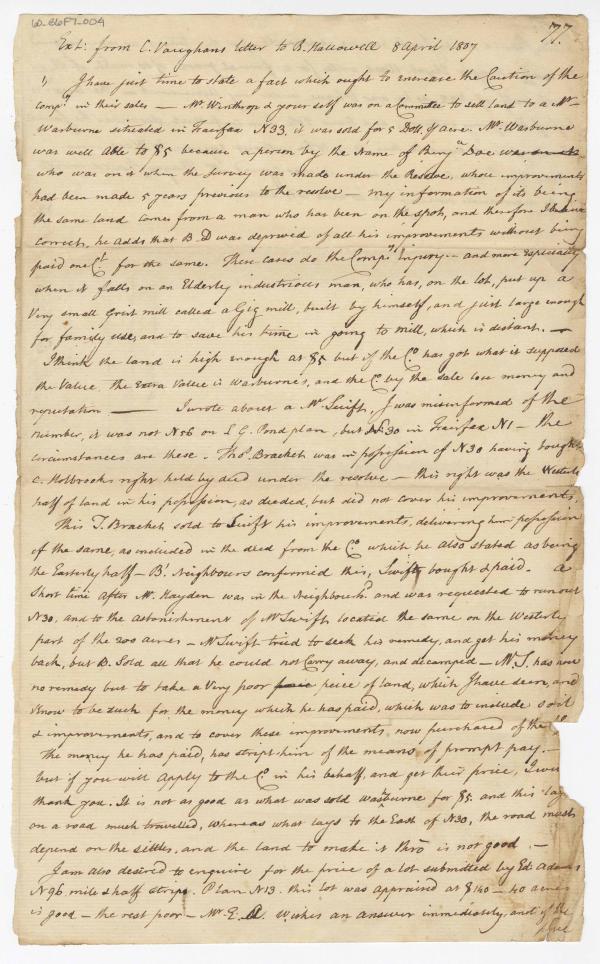 10-86F7-004
77.
Ext: from C. Vaughans letter to B. Hallowell 8 April 1807
" I have just time to state a fact which ought to encrease the Caution of the
Comp.y in their sales — Mr Winthrop & your self was on a Committee to sell land to a Mr
Warburne situated in Fairfax N33. it was sold for 5 Doll. p acre. Mr. Warburne
was well able to $5 because a person by the Name of Benj.a Doe
who was on it when the Survey was made under the Resolve, whose improvements
had been made 5 years previous to the resolve — my information of its being
the same land comes from a man who has been on the spot, and therefore I believe
correct, he adds that B. D was deprived of all his improvements without being
paid one Ct for the same. These cases do the Comp.y Injury — and more especially
when it falls on an Elderly industrious man, who has, on the lot, put up a
Very small Grist mill called a Gig mill, built by himself, and just large enough
for family use, and to save his time in going to mill, which is distant. —
I think the land is high enough at $5 but if the Co. has got what is supposed
the Value, the Extra Value is Warburne's, and the Co by the sale lose money and
reputation — I wrote about a Mr Swift, I was misinformed of the
number, it was not N56 on L. G. Pond plan, but N30 in Fairfax N1 — the
circumstances are these. Thos. Bracket was in possession of N30 having bought
C. Holbrooks right held by deed under the resolve — this right was the Westerly
half of land in his possession, as deeded, but did not cover his improvements,
This T. Bracket sold to Swift his improvements, delivering him possession
of the same, as included in the deed from the Co. which he also stated as being
the Easterly half — Bs. Neighbours confirmed this, Swift bought & paid. a
short time after Mr. Hayden was in the Neighbourhd. and was requested to run out
N30, and to the astonishment of Mr Swift located the same on the Westerly
part of the 200 acres — Mr Swift tried to seek his remedy, and get his money
back, but B. Sold all that he could not Carry away, and decamped — Mr. S. has now
no remedy but to take a Very poor peice of land, which I have seen, and
know to be such for the money which he has paid, which was to include soil
& improvements, and to cover these improvements, now purchased of the Co
The money he has paid, has stript him of the means of prompt pay. —
but if you will apply to the Co in his behalf, and get their price, I will
thank you. It is not as good as what was sold Warburne for $5. and this lays
on a road much travelled, whereas what lays to the East of N30, the road must
depend on the settler, and the land to make it thro' is not good —
I am also desired to enquire for the price of a lot submitted by Ed Adams
N96 mile & half strip. Plan N13. this lot was appraised at $140 — 40 acres
is good — the rest poor — Mr. E. A wishes an answer immediately, and if the
price